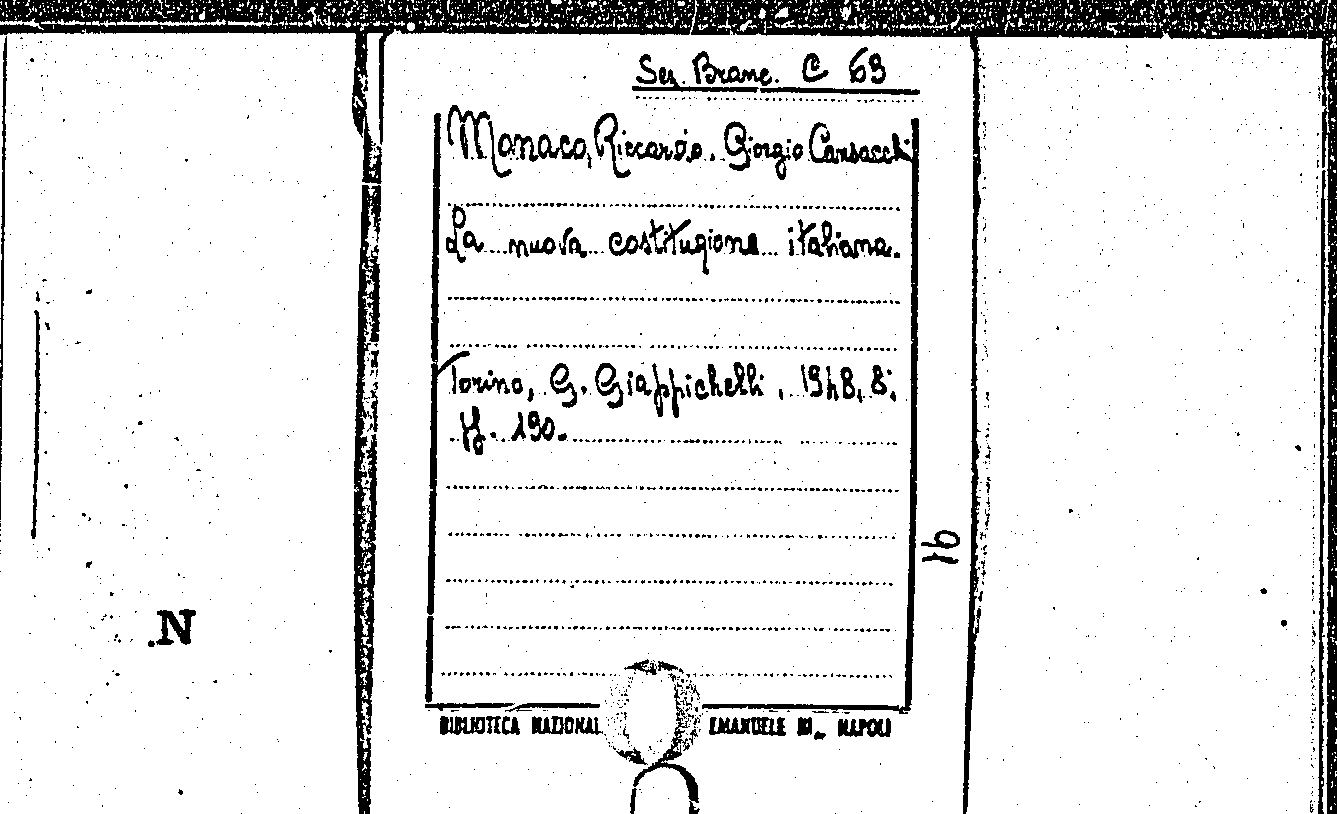 Sez. Branc. C 69
Monaco, Riccardo. Giorgio Cansacchi
La nuova costituzione italiana.
Torino, G. Giappichelli, 1948, 8°,
pp. 190.
91
.N
BIBLIOTECA NAZIONAL EMANUELE III - NAPOLI